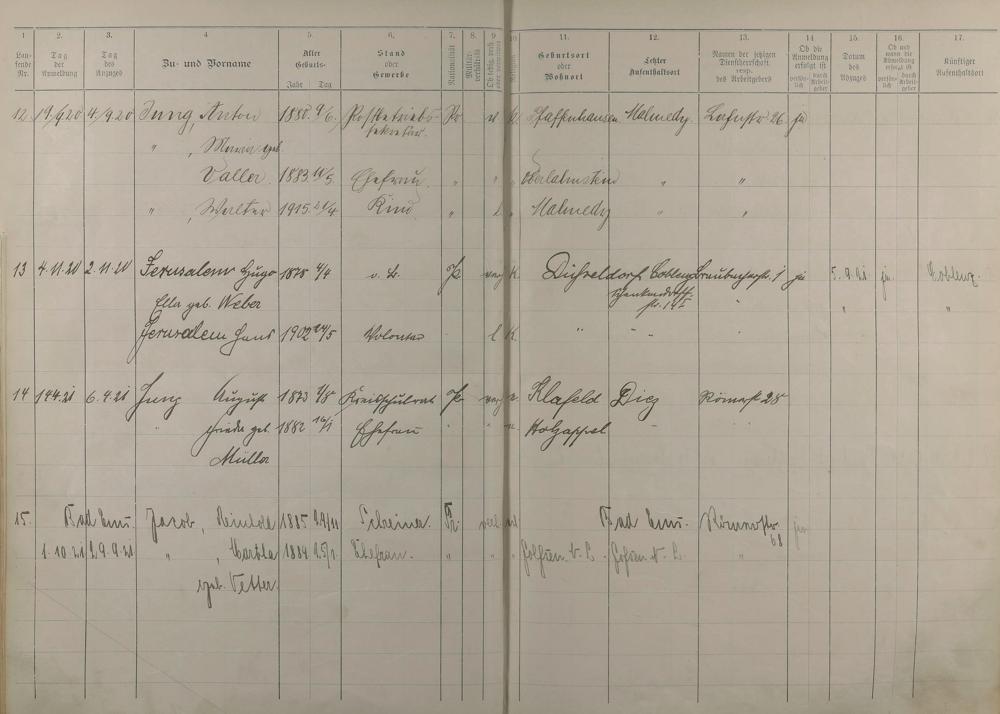 1 2. 3. 4. 5. 6. 7. 8. 9 10 11. 12. 13. 14 15. 16. 17.
Lau- fende Nr. Tag der Anmeldung Tag des Anzuges Zu- und Vorname Alter Geburts- Jahr Tag Stand oder Gewerbe Nationalität Militär- verhältnis Geburtsort oder Wohnort Letzter Aufenthaltsort Namen der jetzigen Dienstherrschaft resp. des Arbeitgebers Ob die Anmeldung erfolgt ist persön- lich durch Arbeit- geber Datum des Abzuges Ob und wann die Abmeldung erfolgt ist persön- lich durch Arbeit- geber Künftiger Aufenthaltsort
12 19/9 20 4/9 20 Jung, Anton 1880 9/6. Postbetriebs- Pr Pfaffenhausen Malmedy. Lahnstr 26 ja
sekretär.
" , Maria geb.
Valler. 1883 Ehefrau. " " Oberlahnstein " "
" , Walter 1915 Kind " l " Malmedy " "
13 4.11.20 2.11.20 Jerusalem Hugo 1878 4/4 o. B. Pr verh K. Düsseldorf Coblenz Braubacherstr. 1 ja 5.9.21 ja Coblenz.
Ella geb. Weber " " "
Jerusalem Hans 1902 24/5 Volontär l K. " " "
14 14.4.21 6.4.21 Jung August 1873 1/8 Kreisschulrat Pr verh e. Klafeld Diez Römerstr 28
" Frieda geb. 1882 16/1 Ehefrau " " e. Holzappel "
Müller
15. Bad Ems. Jacob, Reinhold 1885 29/11 Schreiner. Pr. verh. Bad Ems. Römerstr. ja
68
1.10.21 29.9.21 " , Martha 1884 25/2. Ehefrau. " " " "
geb. Vetter.